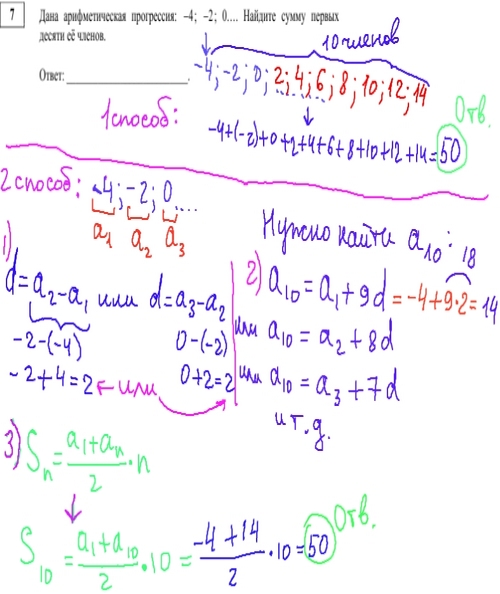 7 Дана арифметическая прогрессия: –4; –2; 0.... Найдите сумму первых
десяти её членов.
10 членов
Ответ: ____________________.
-4; -2; 0; 2; 4; 6; 8; 10; 12; 14
1 способ:
Отв.
-4+(-2)+0+2+4+6+8+10+12+14=50
2 способ: -4; -2; 0....
a₁ a₂ a₃
Нужно найти a₁₀:
1)
d=a₂-a₁ или d=a₃-a₂
-2-(-4) 0-(-2)
-2+4=2 ← или 0+2=2
18
2) a₁₀=a₁+9d=-4+9·2=14
или a₁₀=a₂+8d
или a₁₀=a₃+7d
и т.д.
3) Sₙ=(a₁+aₙ)/2·n
Отв.
S₁₀=(a₁+a₁₀)/2·10=(-4+14)/2·10=50